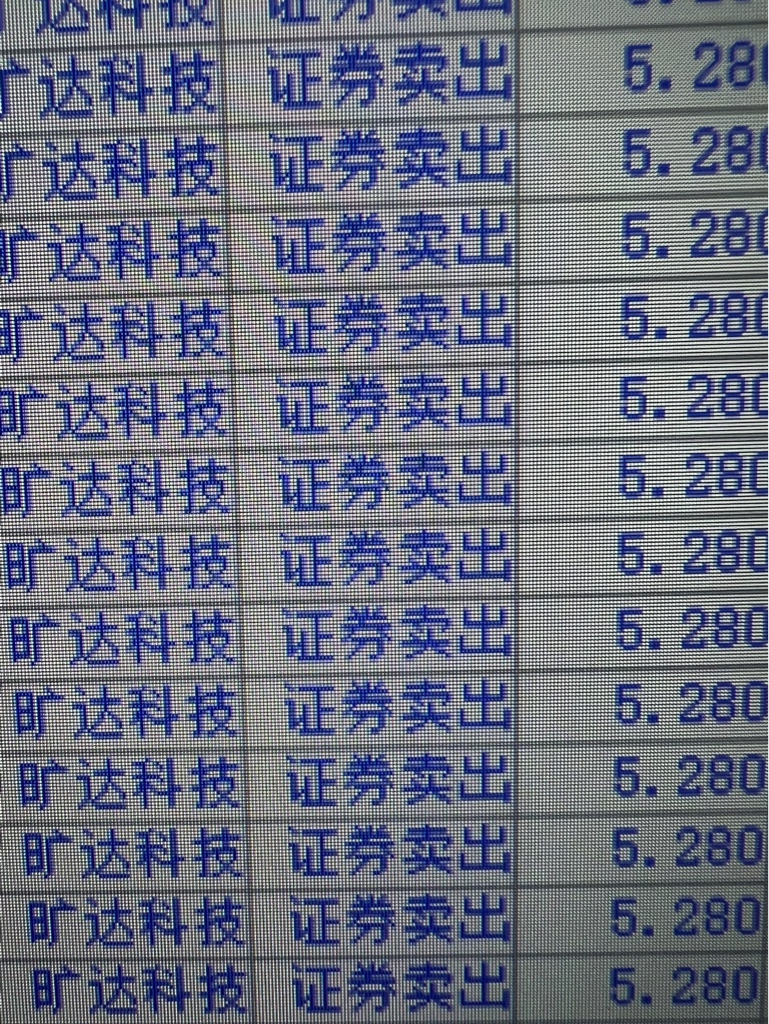 旷达科技 证券卖出
旷达科技 证券卖出 5.280
旷达科技 证券卖出 5.280
旷达科技 证券卖出 5.280
旷达科技 证券卖出 5.280
旷达科技 证券卖出 5.280
旷达科技 证券卖出 5.280
旷达科技 证券卖出 5.280
旷达科技 证券卖出 5.280
旷达科技 证券卖出 5.280
旷达科技 证券卖出 5.280
旷达科技 证券卖出 5.280
旷达科技 证券卖出 5.280
旷达科技 证券卖出 5.280